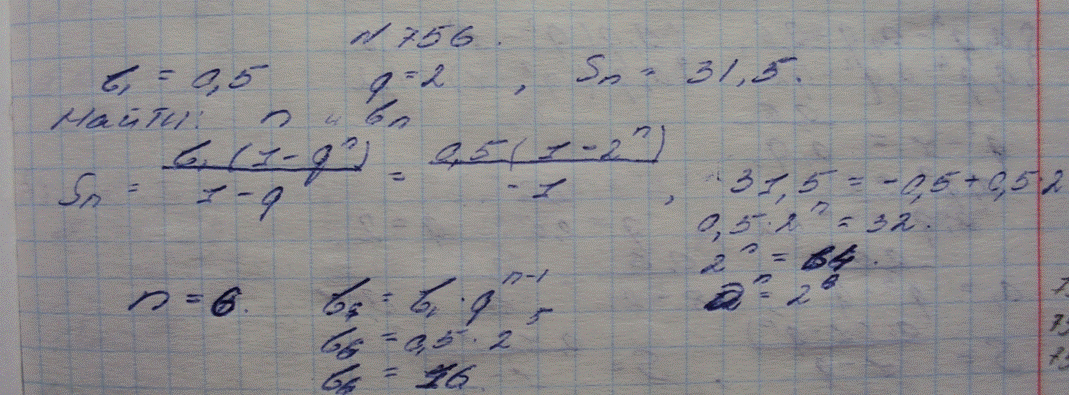 N 756.
b₁ = 0,5 q = 2 , Sₙ = 31,5.
Найти: n и bₙ
Sₙ = b₁(1-qⁿ)/1-q = 0,5(1-2ⁿ)/-1 , 31,5 = -0,5 + 0,5·2
0,5·2ⁿ = 32.
2ⁿ = 64.
2ⁿ = 2⁶
n = 6. bₙ = b₁·qⁿ⁻¹
b₆ = 0,5·2⁵
b₆ = 16